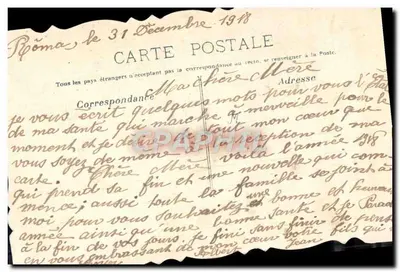 Roma, le 31 Décembre 1918
CARTE POSTALE
Tous les pays étrangers n'acceptent pas la correspondance au recto, se renseigner à la Poste.
Correspondance
Adresse
Ma chère Mère
je vous écrit quelques mots pour vous
de ma santé qui marche à merveille pour le
moment et je désire de tout mon cœur que
vous soyez de même à la réception de ma
carte. Chère Mère voilà l'année 1918
qui prend sa fin et une nouvelle qui com
mence; aussi toute la famille se joint à
moi pour vous souhaiter une bonne et heureuse
année ainsi qu'une bonne santé et le
à la fin de vos jours. je fini sans finir de
en vous embrassant de mon cœur votre fils qui
Jean
CPARAMA